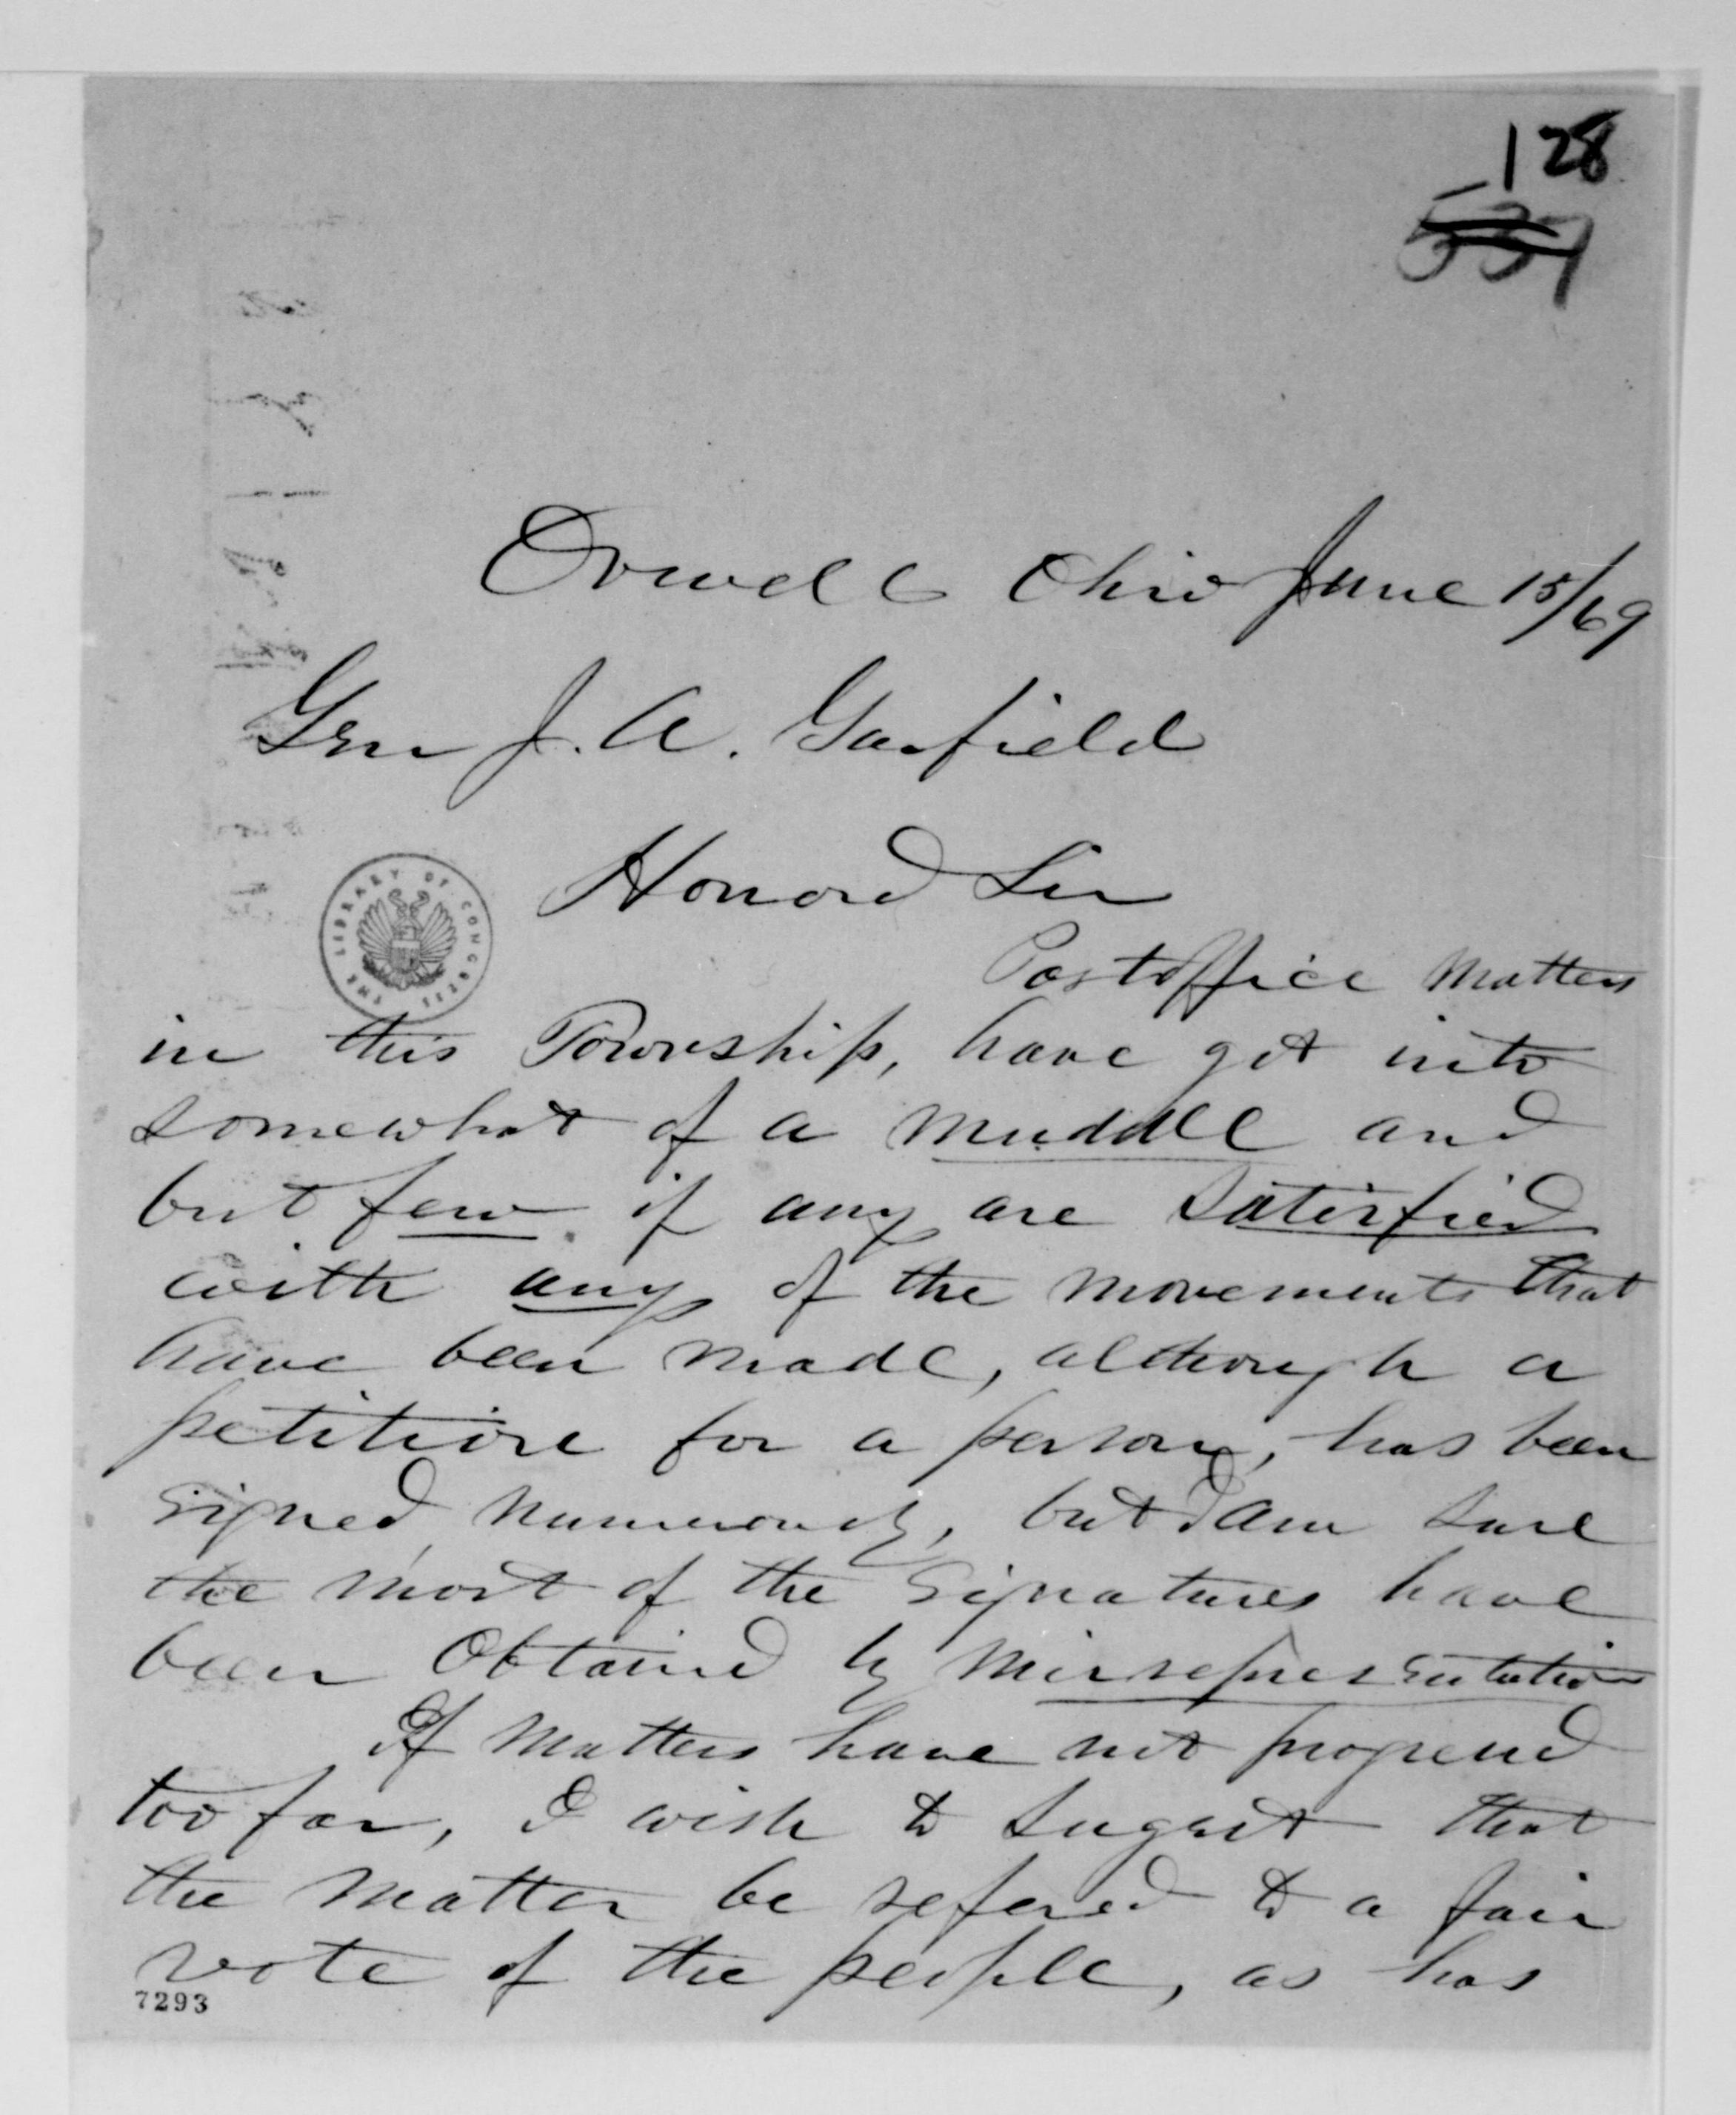 128
537
Orwell Ohio June 15/69
Gen J. A. Garfield
Honord Sir
THE LIBRARY OF CONGRESS
Postoffice Matters
in this Township, have got into
somewhat of a muddle and
but few if any are satisfied
with any of the movements that
have been made, although a
petition for a person, has been
signed numerously, but I am sure
the most of the signatures have
been Obtained by Misrepresentation
If Matters have not progressed
too far, I wish to sugest that
the Matter be refered to a fair
vote of the people, as has
7293